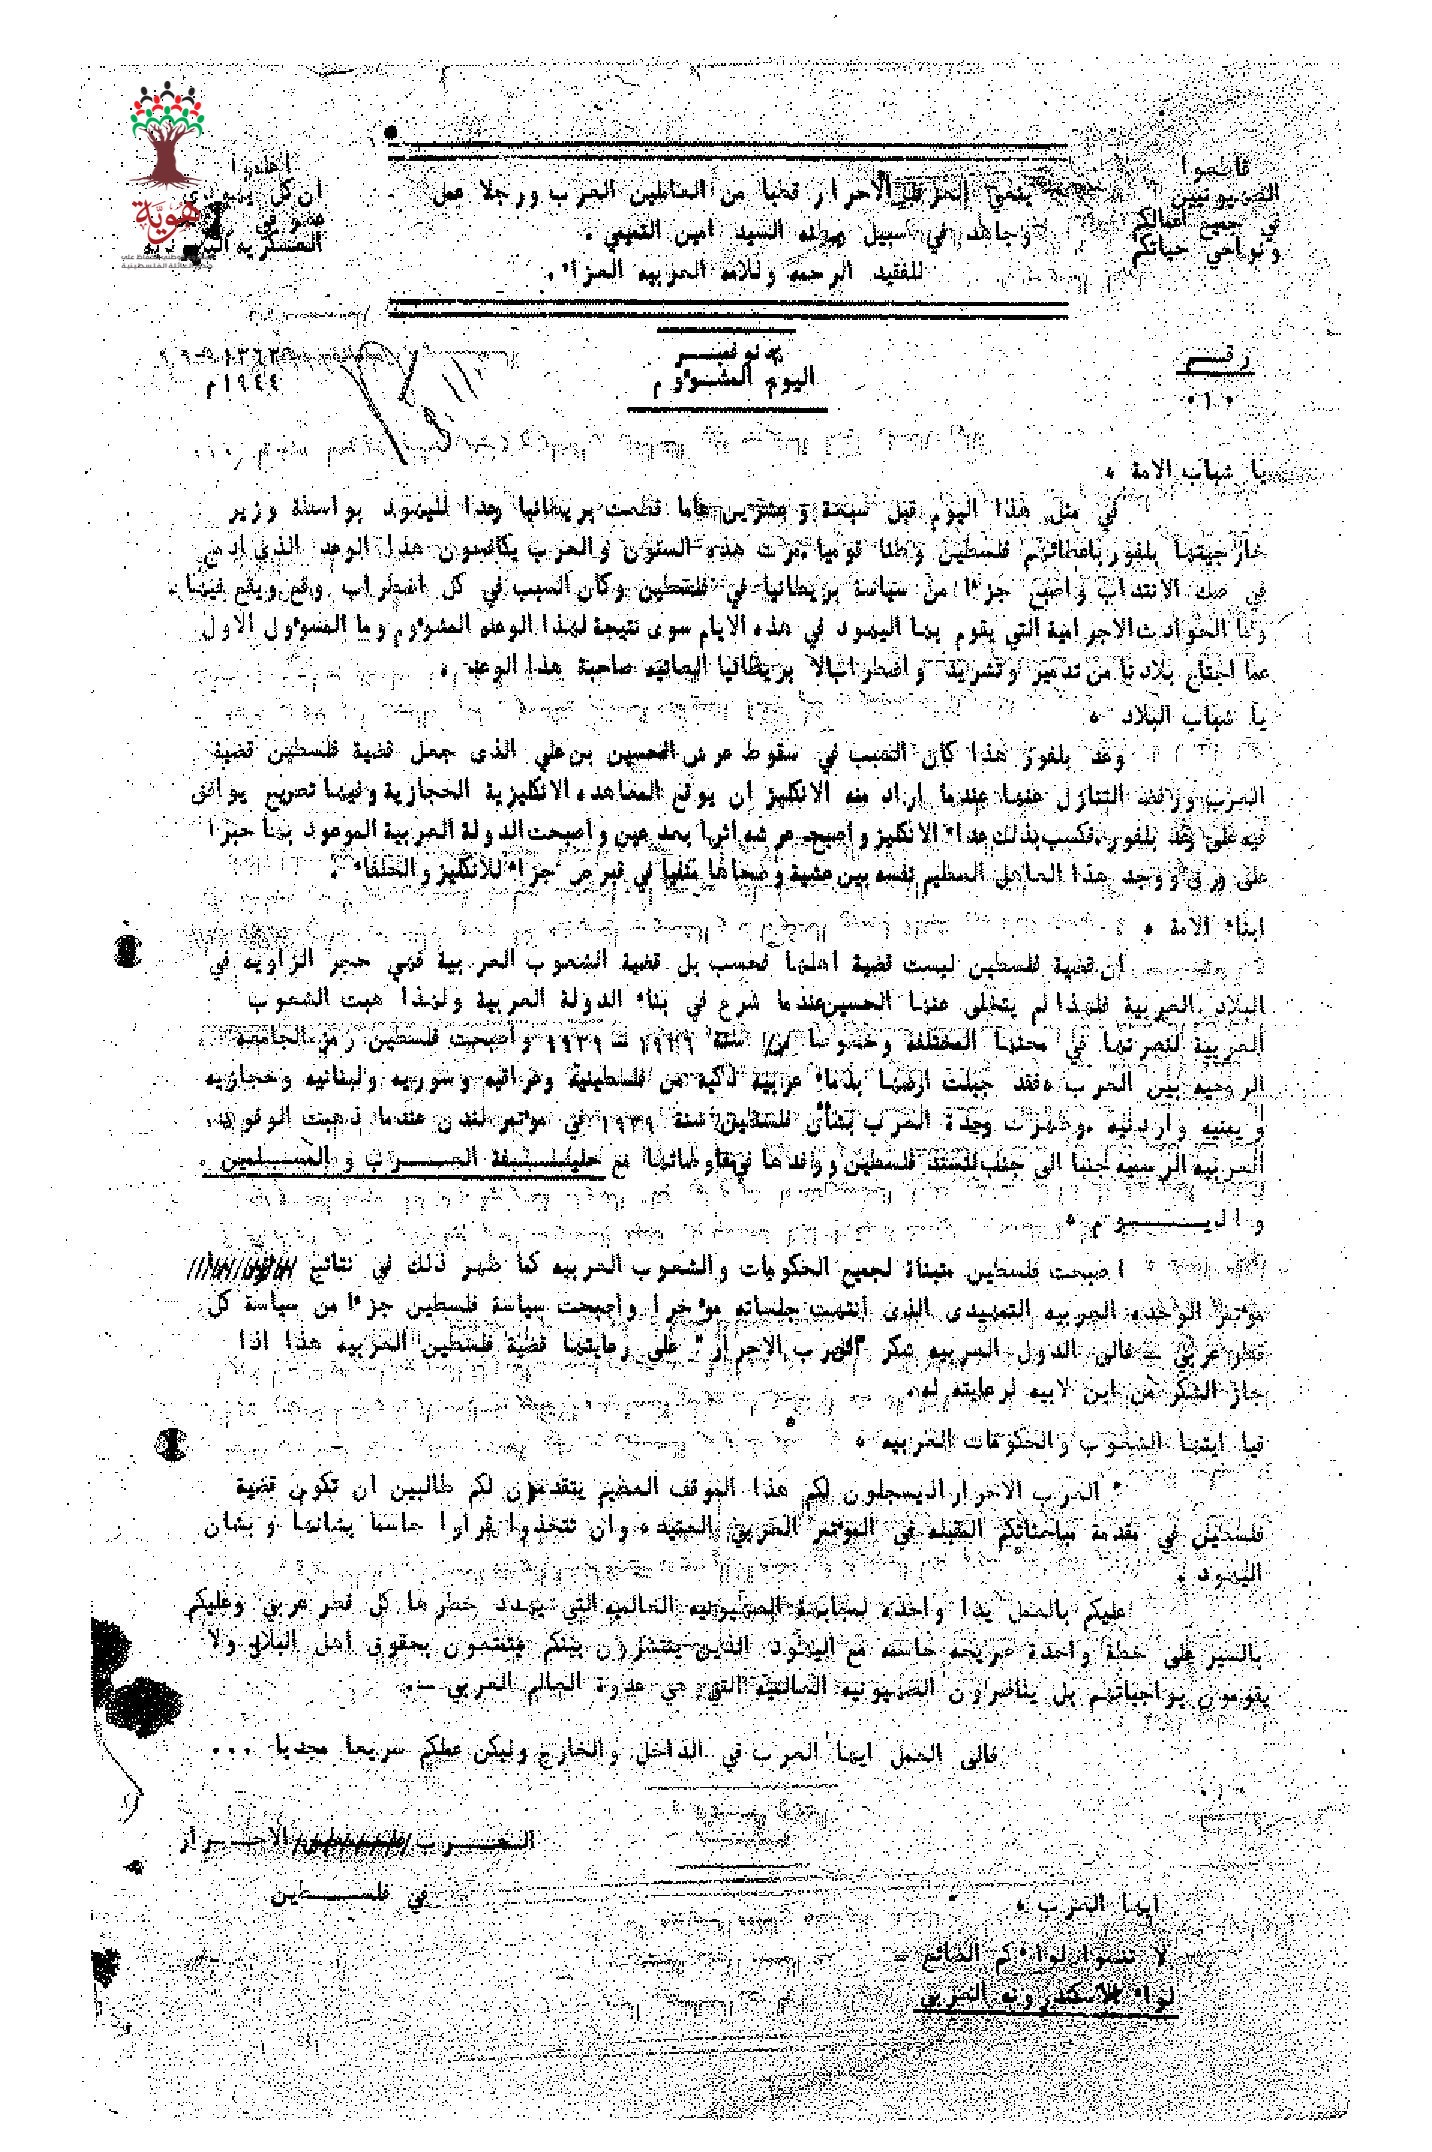 قاطعوا
الصهيونيين
في جميع اعمالكم
ونواحي حياتكم
ينعي العرب الاحرار قطبا من العاملين العرب ورجلا عمل
وجاهد في سبيل وطنه السيد امين التميمي .
للفقيد الرحمه وللامه العربيه العزاء .
احذروا
ان كل يهودي
عضو في
العسكريه اليهوديه
هُويّة
رقم
١
٢ نوفمبر
اليوم المشؤوم
١٣٦٣
١٩٤٤م
يا شباب الامة .
في مثل هذا اليوم قبل سبعة وعشرين عاما قطعت بريطانيا وعدا لليهود بواسطة وزير
خارجيتها بلفور باعطائهم فلسطين وطنا قوميا . مرت هذه السنون والعرب يكافحون هذا الوعد الذي ادمج
في صك الانتداب واصبح جزءا من سياسة بريطانيا في فلسطين وكان السبب في كل اضطراب وقع ويقع فيها .
وما الحوادث الاجرامية التي يقوم بها اليهود في هذه الايام سوى نتيجة لهذا الوعد المشؤوم وما المسؤول الاول
عما اجتاح بلادنا من تدمير وتشريد واضطراب الا بريطانيا صاحبة هذا الوعد .
يا شباب البلاد .
وعد بلفور هذا كان السبب في سقوط عرش الحسين بن علي الذى جعل قضية فلسطين قضية
العرب ورفض التنازل عنها عندما اراد منه الانكليز ان يوقع المعاهده الانكليزية الحجازية وفيها تصريح يوافق
فيه على وعد بلفور . فكسب بذلك عداء الانكليز واصبح عرشه اثرا بعد عين واصبحت الدولة العربية الموعود بها حبرا
على ورق ووجد هذا العاهل العظيم نفسه بين عشية وضحاها منفيا في قبرص جزاء للانكليز والحلفاء .
ابناء الامة .
ان قضية فلسطين ليست قضية اهلها فحسب بل قضية الشعوب العربية فهي حجر الزاويه في
البلاد العربية فلهذا لم يتخلى عنها الحسين عندما شرع في بناء الدولة العربية ولهذا هبت الشعوب
العربية لنصرتها في محنها المختلفة وخصوصا سنة ١٩٣٦ ١٩٣٩ واصبحت فلسطين رمز الجامعه
الروحيه بين العرب . فقد جبلت ارضها بدماء عربية ذكية من فلسطينية وعراقيه وسوريه ولبنانيه وحجازيه
ويمنيه واردنيه . وظهرت وحدة العرب بشأن فلسطين سنة ١٩٣٩ في مؤتمر لندن عندما ذهبت الوفود
العربيه الرسميه جنبا الى جنب فلسطين ووافدها مع العرب والمسلمين .
واليوم .
اصبحت فلسطين متبناة لجميع الحكومات والشعوب العربيه كما ظهر ذلك في نتائج
مؤتمر الوحده العربيه التمهيدى الذى انتهت جلساته مؤخرا واصبحت سياسة فلسطين جزءا من سياسة كل
قطر عربي - فالى الدول العربيه شكر " العرب الاحرار " على رعايتها قضية فلسطين العربيه هذا اذا
جاز الشكر من ابن لابيه لرعايته له .
فيا ايتها الشعوب والحكومات العربيه .
" العرب الاحرار " يسجلون لكم هذا الموقف العظيم يتقدمون لكم طالبين ان تكون قضية
فلسطين في مقدمة مباحثاتكم المقبله في المؤتمر العربي وان تتخذوا قرارا حاسما بشانها وبشان
اليهود .
عليكم بالعمل يدا واحده لمجابهة الصهيونيه العالميه التي يهدد خطرها كل قطر عربي وعليكم
بالسير على خطة واحدة صريحه حاسمه مع اليهود الذين ينتشرون بينكم يتمتعون بحقوق اهل البلاد ولا
يقومون بواجباتهم بل يناصرون الصهيونيه العالميه التي هي عدوة العالم العربي - .
فالى العمل ايها العرب في الداخل والخارج وليكن عملكم سريعا مجديا ...
العرب الاحرار
في فلسطين
ايها العرب .
لا تنسوا لواءكم الضائع -
لواء الاسكندرونه العربي